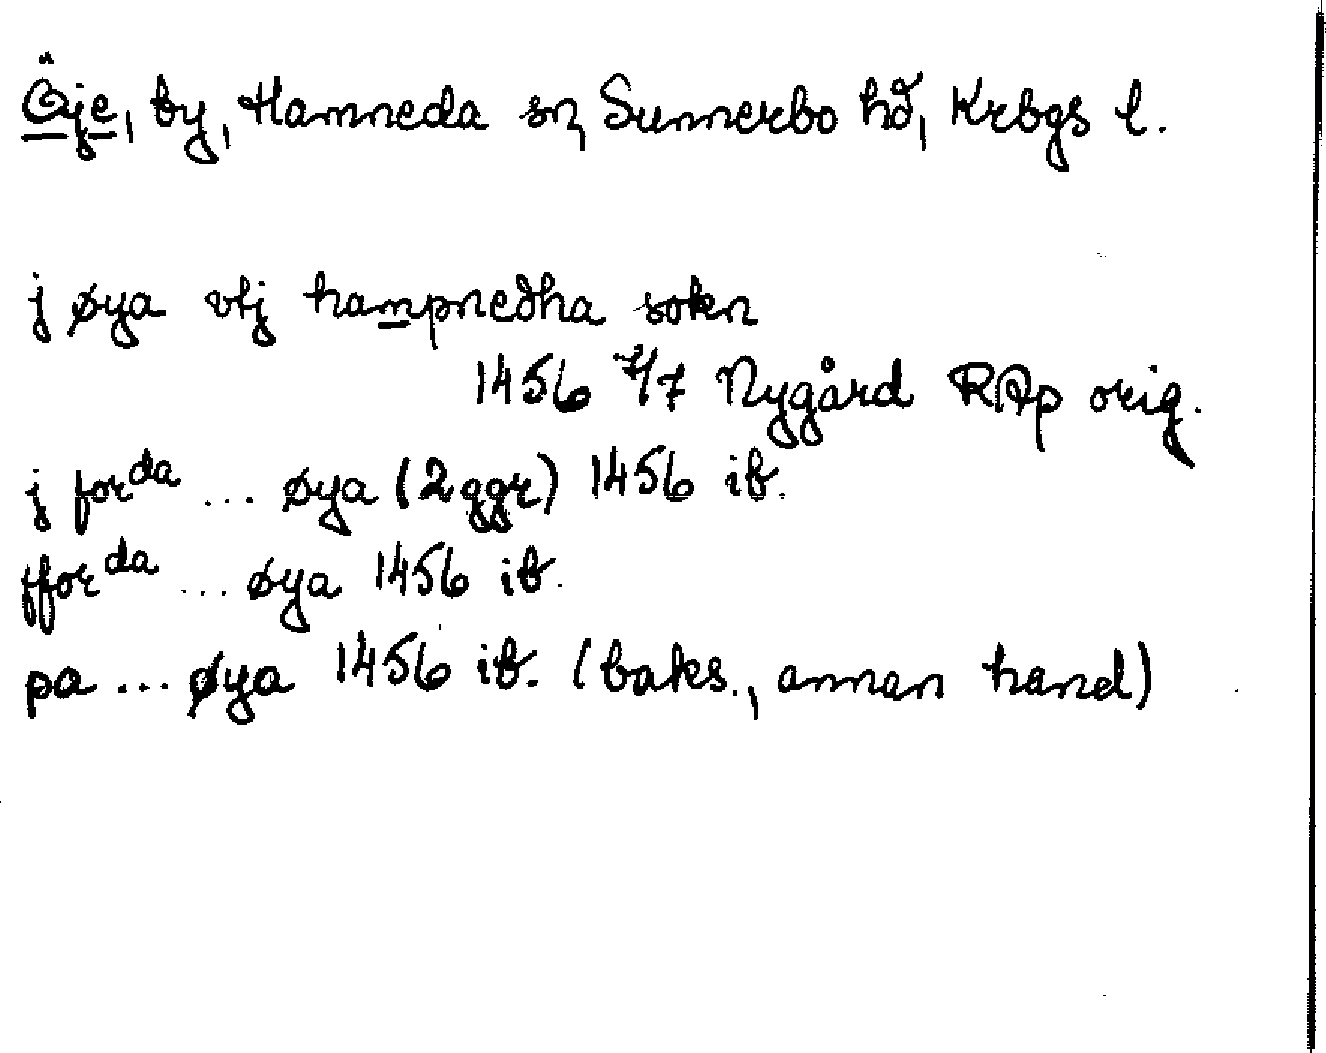 Öje, by, Hamneda sn, Sunnerbo hd, Krbgs l.
j øya vtj hampnedha sokn
1456 7/7 Nygård RAp orig.
j for da ... øya (2 ggr) 1456 ib.
ffor da ... øya 1456 ib.
pa ... øya 1456 ib. (baks., annan hand)